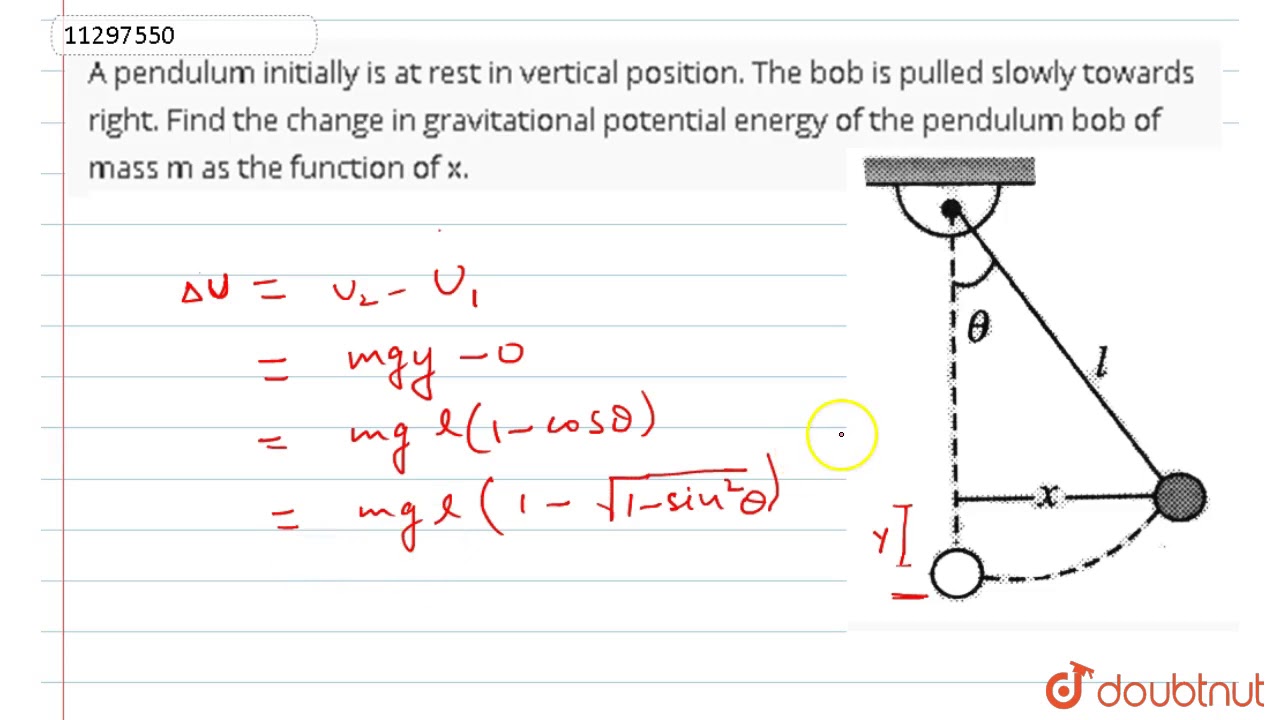 11297550
A pendulum initially is at rest in vertical position. The bob is pulled slowly towards
right. Find the change in gravitational potential energy of the pendulum bob of
mass m as the function of x.
ΔU = U₂ - U₁
= mgy - 0
= mg l(1 - cosθ)
= mg l(1 - √(1-sin²θ))
θ
l
x
y
doubtnut